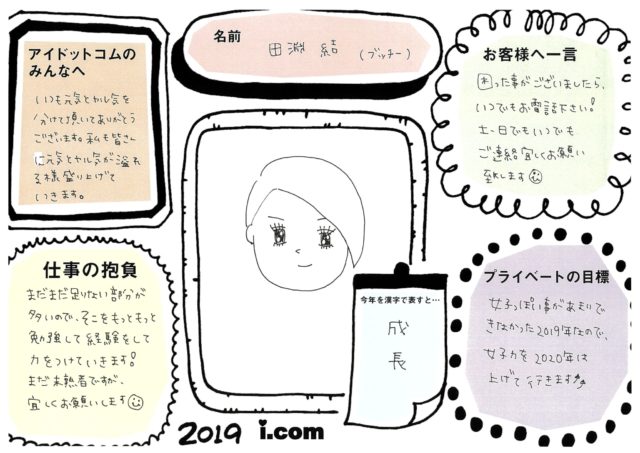 アイドットコムの
みんなへ
いつも元気とヤル気を
分けて頂いてありがとう
ございます。私も皆さん
に元気とヤル気が溢れ
る様盛り上げて
いきます。
名前
田渕 結 (ブッチー)
お客様へ一言
困った事がございましたら、
いつでもお電話下さい!
土、日でもいつでも
ご連絡宜しくお願い
致します
仕事の抱負
まだまだ足りない部分が
多いので、そこをもっともっと
勉強して経験をして
力をつけていきます!
まだ未熟者ですが、
宜しくお願いします
今年を漢字で表すと…
成
長
プライベートの目標
女子っぽい事があまりで
きなかった2019年なので、
女子力を2020年は
上げて行きます
2019 i.com